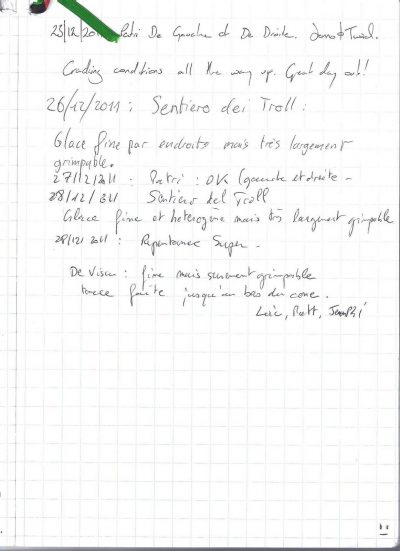 25/12/2011 Patri De Gauche et De Droite.
Cracking conditions all the way up. Great day out!
26/12/2011 : Sentiero dei Troll :
Glace fine par endroits mais très largement
grimpable.
27/12/2011 - Patri : OK (gauche et droite -
28/12/2011 Sentiero del Troll
Glace fine et hétérogène mais très largement grimpable
28/12/2011 : Repentance Super -
De Visu : fine mais surement grimpable
trace faite jusqu'au bas du cone.
Loïc,